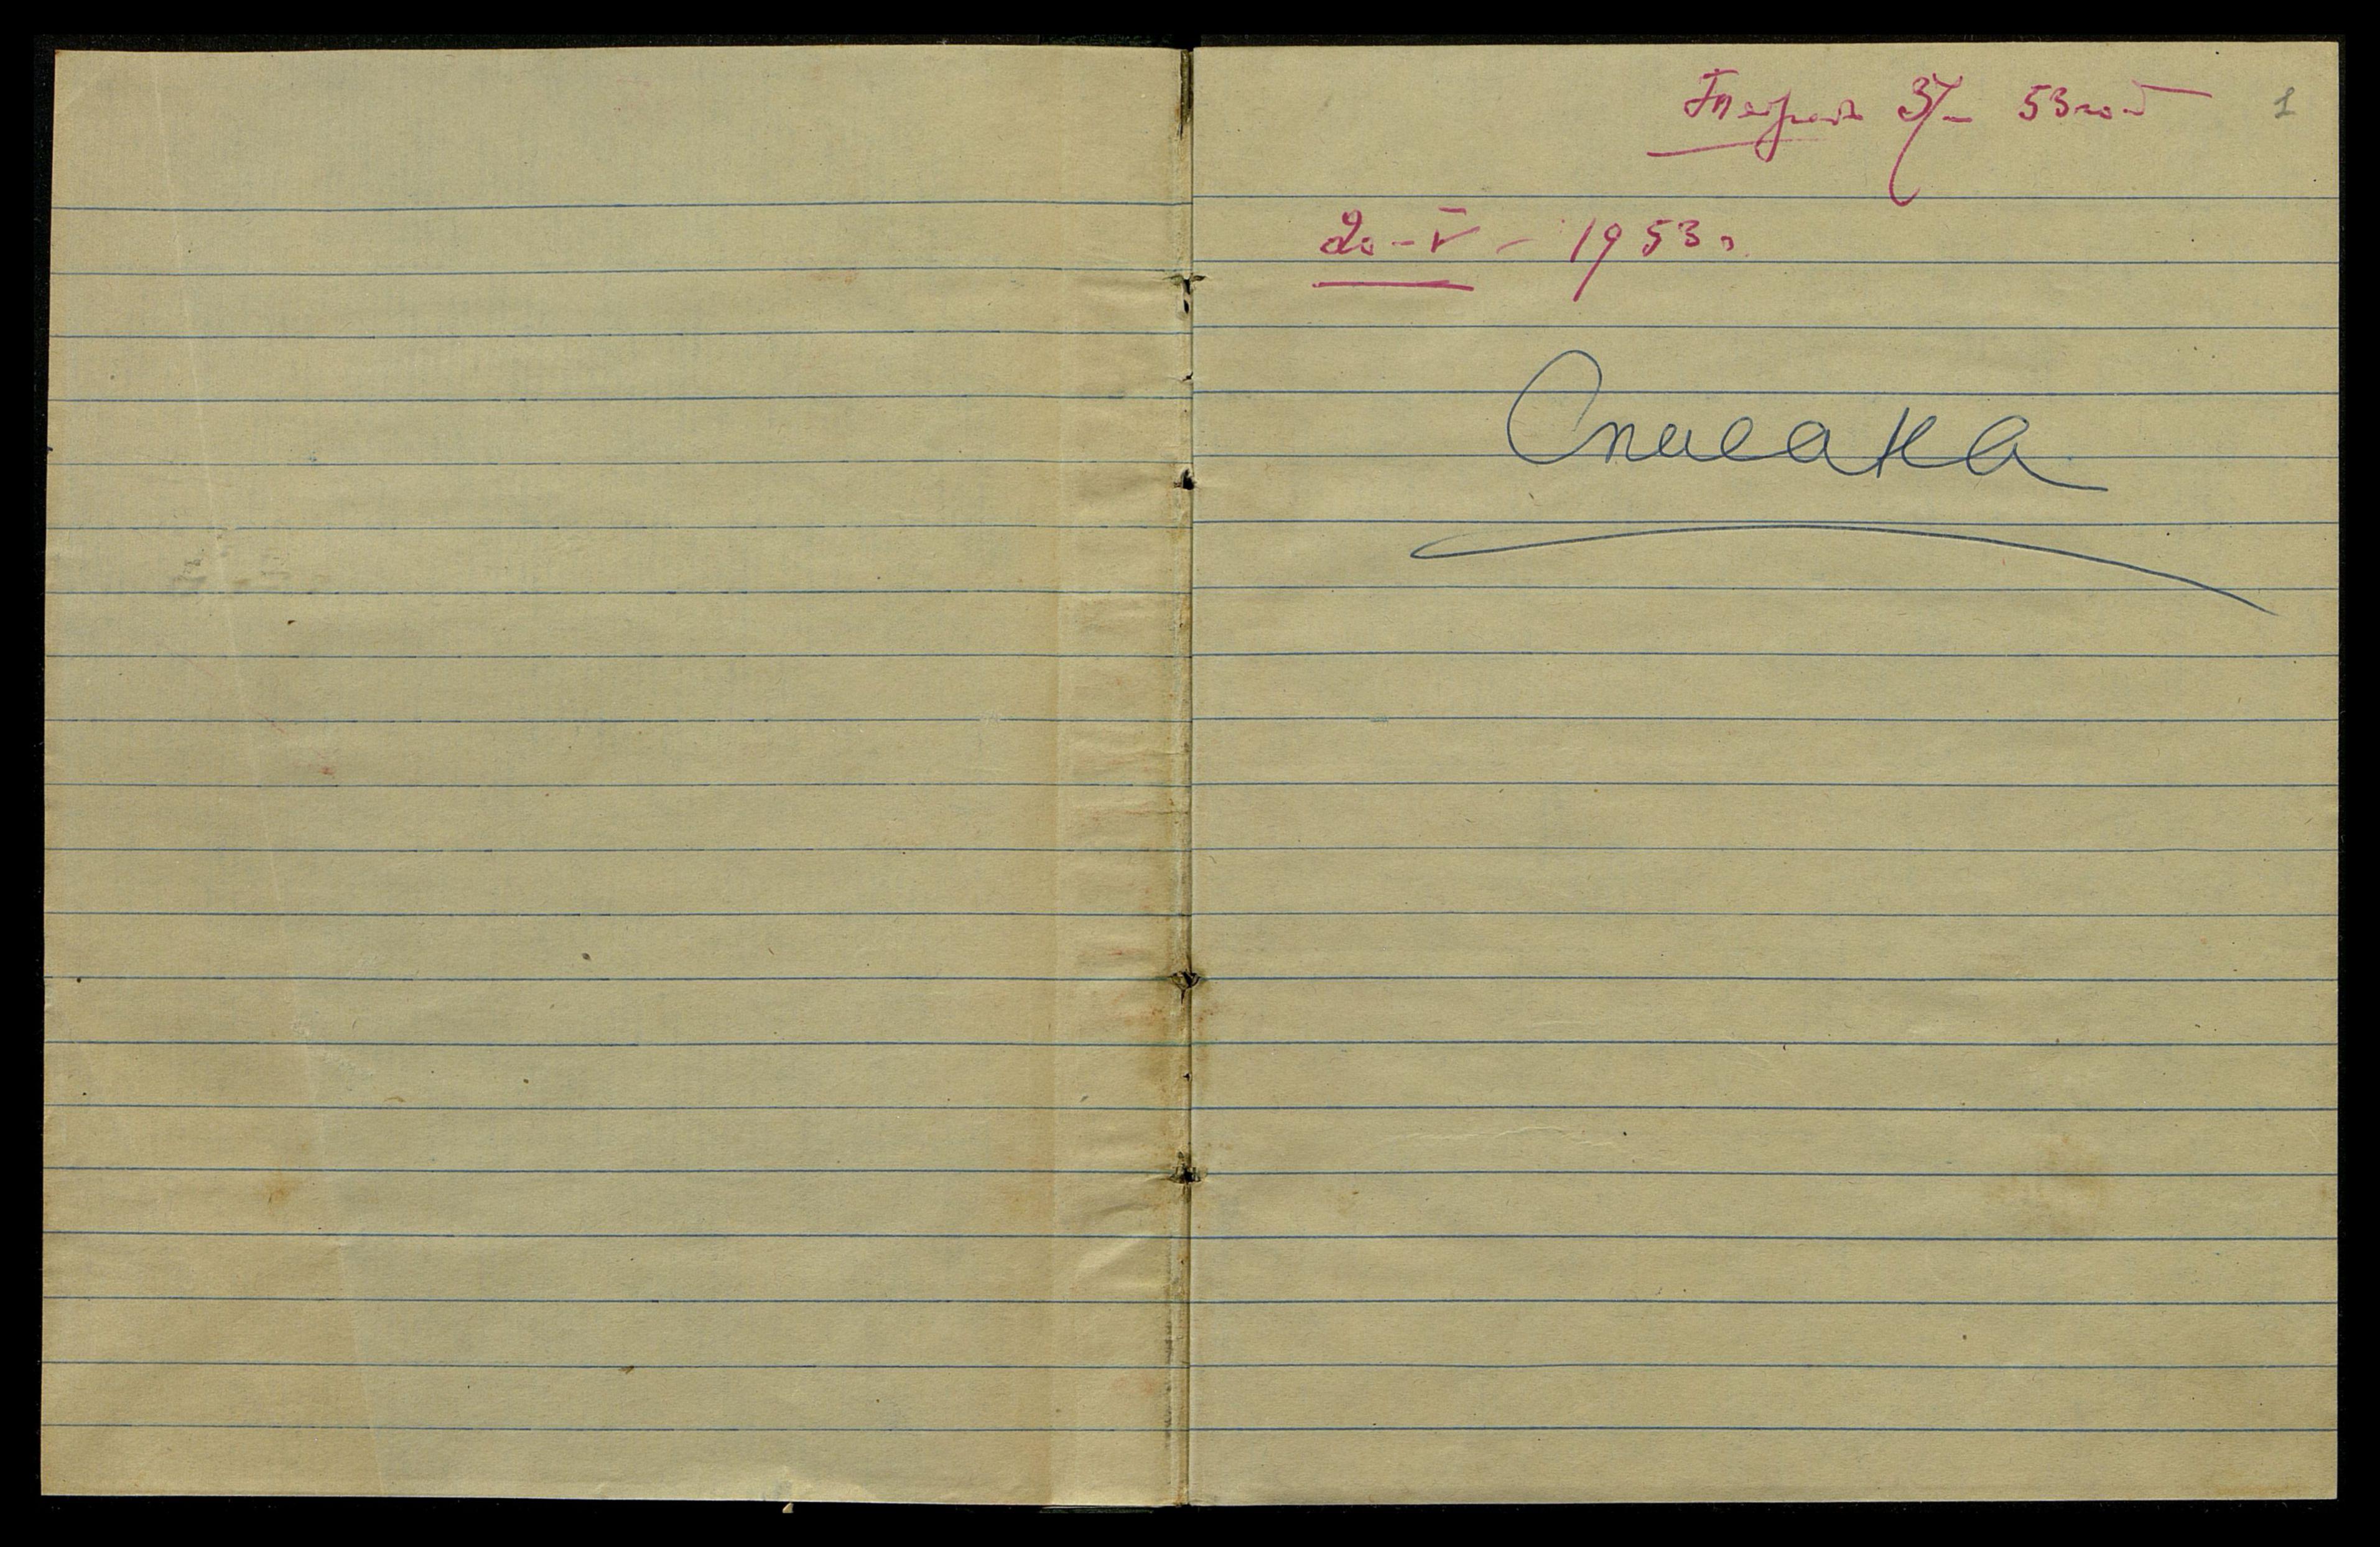 Тетрадь 37 53 год 1
20-V-1953 г.
Списана